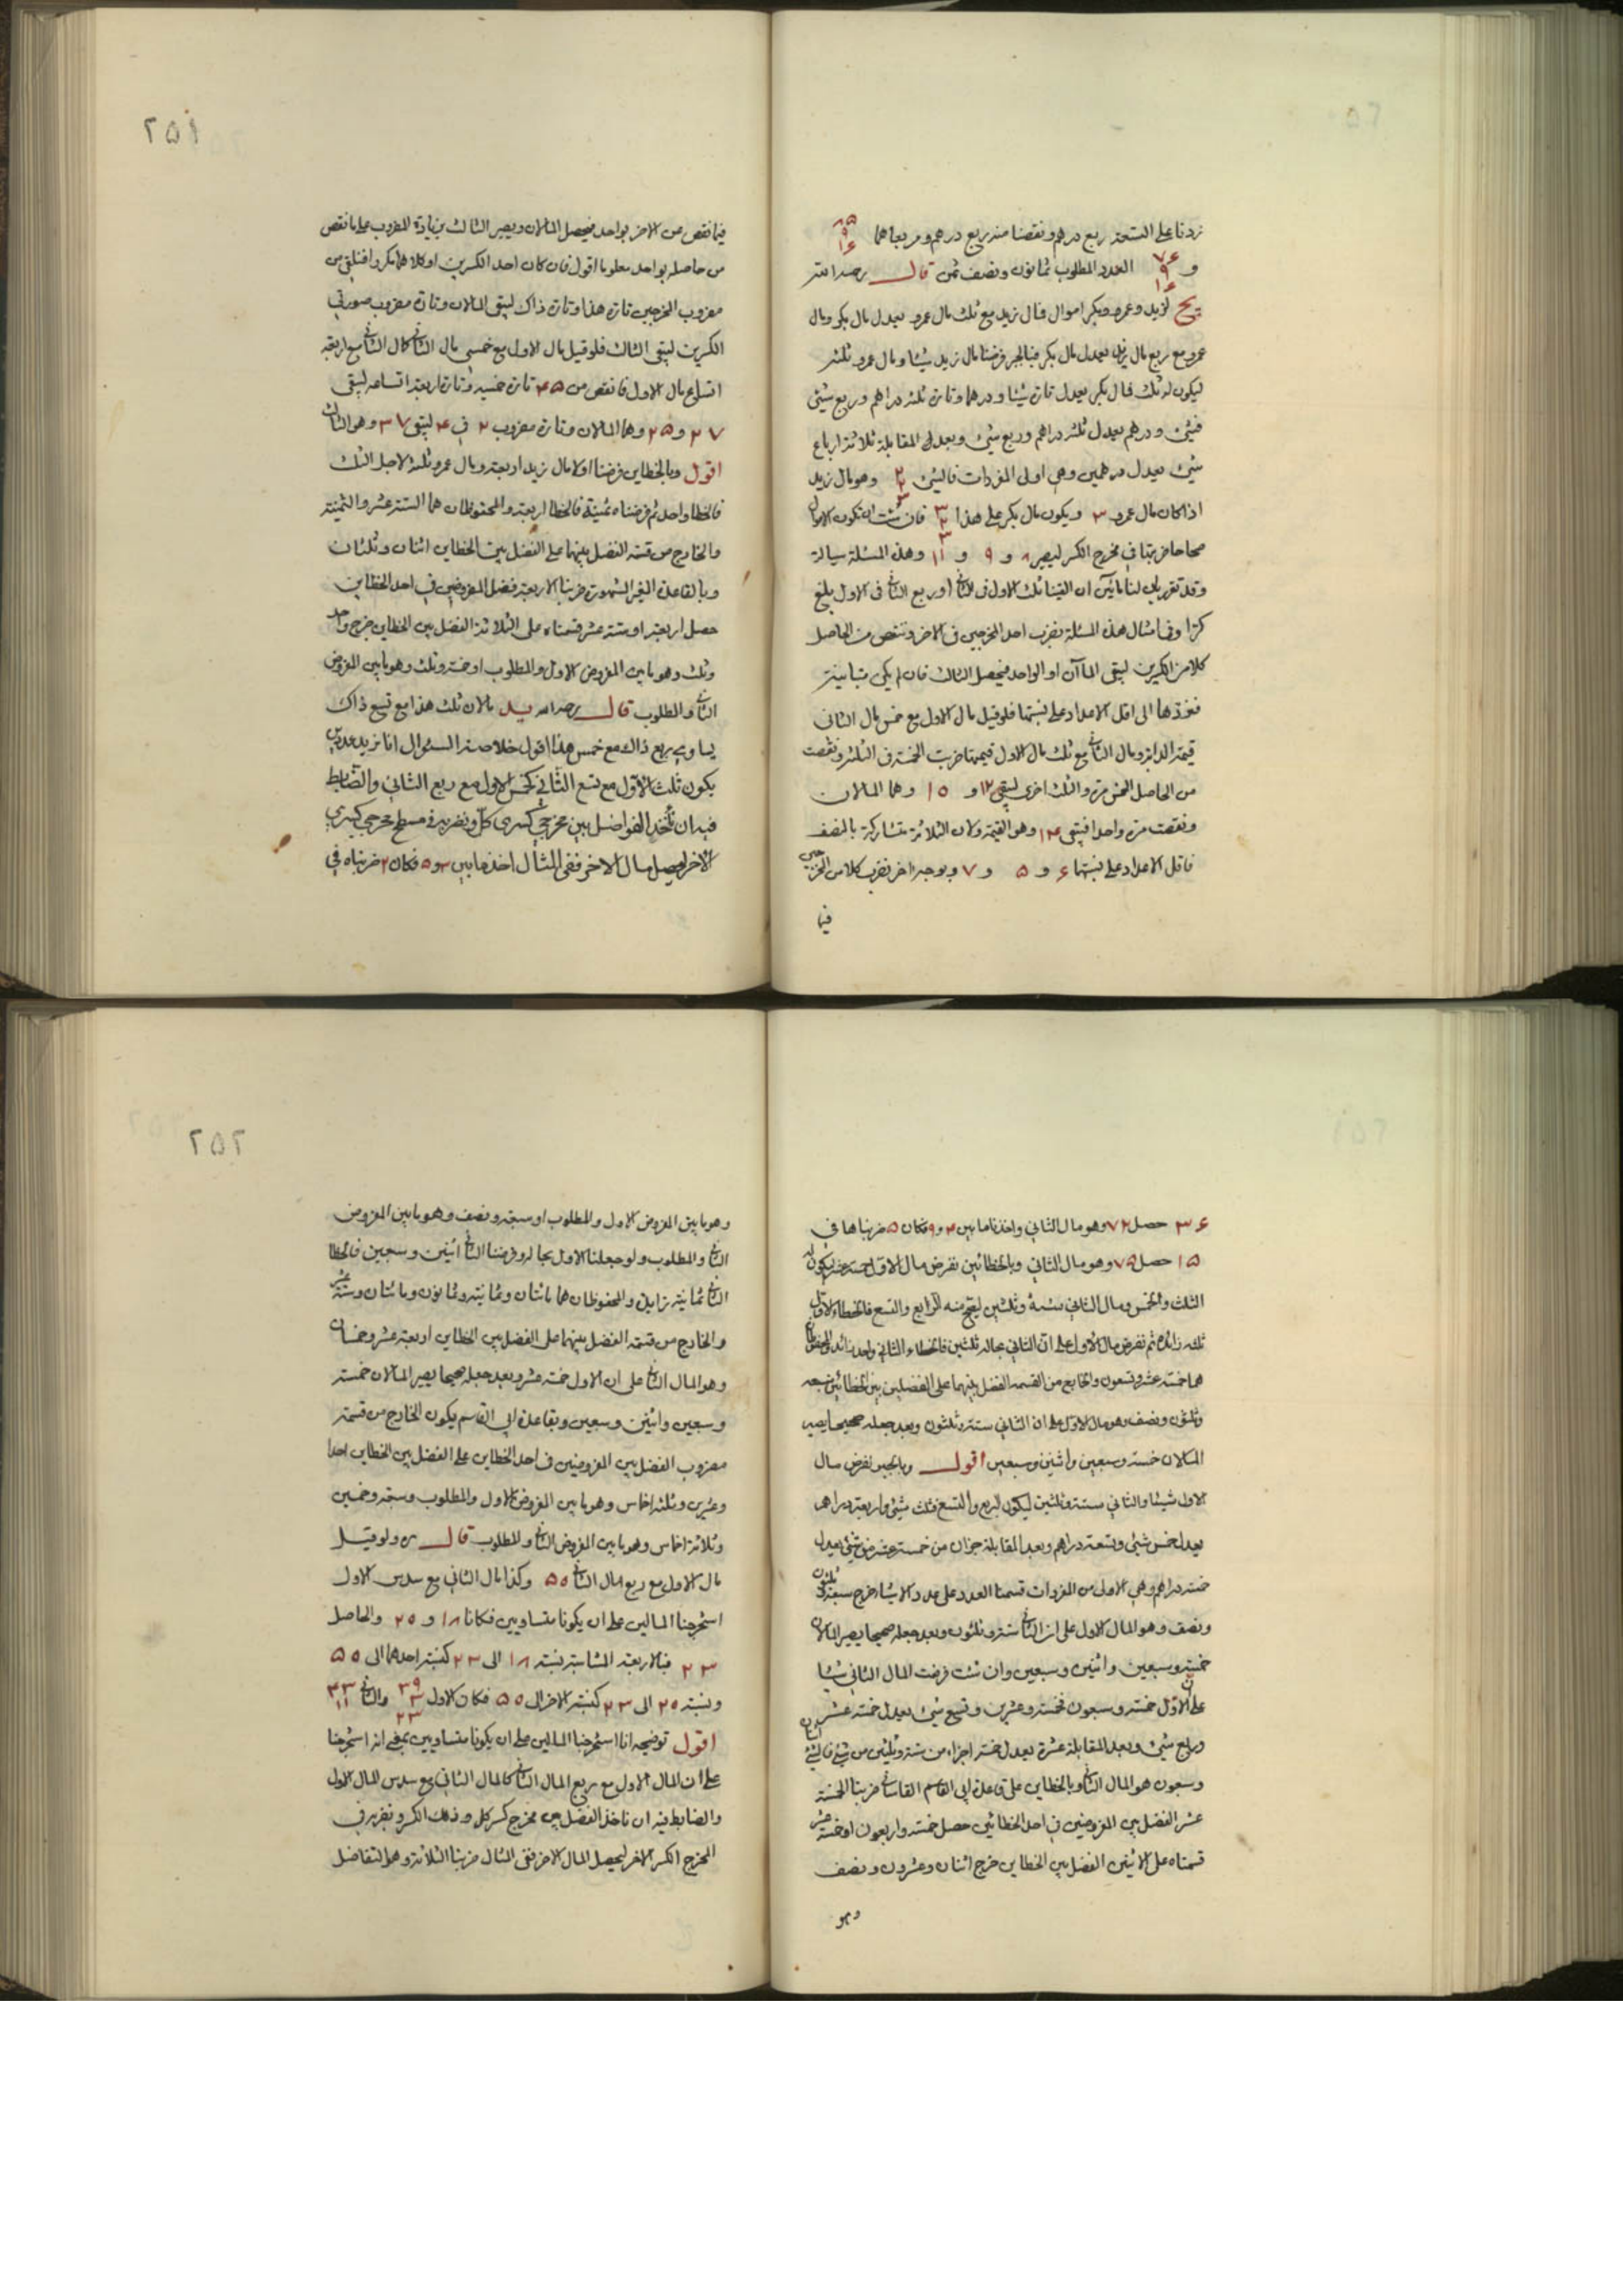 زدنا على التسعة ربع درهم ونقصنا منه ربع درهم ومربعاهما ٨٥ ٩ ١٦
و ٧٦ ٩ ١٦ العدد المطلوب ثمانون ونصف ثمن قال رحمه الله
يج لزيد وعمرو وبكر اموال فمال زيد مع ثلث مال عمرو يعدل مال بكر ومال
عمرو مع ربع مال زيد يعدل مال بكر فبالجبر فرضنا مال زيد شيئا ومال عمرو ثلثة
ليكون له ثلث فمال بكر يعدل تارة شيئا ودرهما وتارة ثلثة دراهم وربع شئ
فشئ ودرهم يعدل ثلثة دراهم وربع شئ وبعد المقابلة ثلاثة ارباع
شئ يعدل درهمين وهي اولى المفردات فالشئ ٢ ٢ ٣ وهو مال زيد
اذا كان مال عمرو ٣ ويكون مال بكر على هذا ٣ ٢ ٣ فان شئت ان تكون الاموال
صحاحا ضربتها في مخرج الكسر ليصير ٨ و ٩ و ١١ وهذه المسئلة سيالة
وقد تقرر لنا ان القينا ثلث الاول في الثاني او ربع الثاني في الاول بلغ
كذا وفي امثال هذه المسئلة نضرب احد المخرجين في الاخر وننقص من الحاصل
كلا من الكسرين ليبقى المالان او الواحد فيحصل الثالث فان لم يكن متباينة
فنردها الى اقل الاعداد على نسبتها فلو قيل مال الاول مع خمس مال الثاني
قيمة الدابة ومال الثاني مع ثلث مال الاول قيمتها ضربت الخمسة في الثلثة ونقصت
من الحاصل الخمس مرة والثلث اخرى ليبقى ١٢ و ١٥ وهما المالان
ونقصت مرة واحدا فبقي ١٤ وهو القيمة ولان الثلاثة متشاركة بالنصف
فاقل الاعداد على نسبتها ٦ و ٥ و ٧ وبوجه اخر نضرب كلا من المخرجين
فيما
٢٥١
فيما نقص من الاخر بواحد فيحصل المالان ويصير الثالث بزيادة المضروب على ما نقص
من حاصله بواحد معلوما اقول فان كان احد الكسرين او كلاهما مكررا فنلقي من
مضروب المخرجين تارة هذا وتارة ذاك ليبقى المالان وتارة مضروب صورتي
الكسرين ليبقى الثالث فلو قيل مال الاول مع خمسي مال الثاني كمال الثاني مع اربعة
اتساع مال الاول فانقص من ٤٥ تارة خمسيه وتارة اربعة اتساعه ليبقى
٢٧ و ٢٥ وهما المالان وتارة مضروب ٢ في ٤ ليبقى ٣٧ وهو الثالث
اقول وبالخطاين فرضنا اولا مال زيد اربعة ومال عمرو ثلثة لاجل الثلث
فالخطا واحد ثم فرضناه ثمنية فالخطا اربعة والمحفوظان هما الستة عشر والثمنية
والخارج من قسمة الفضل بينهما على الفضل بين الخطاين اثنان وثلثان
وبالقاعدة الغير المشهورة ضربنا الاربعة فضل المفروضين في احد الخطاين
حصل اربعة او ستة عشر قسمناه على الثلاثة الفضل بين الخطاين خرج واحد
وثلث وهو ما بين المفروض الاول والمطلوب او خمسة وثلث وهو ما بين المفروض
الثاني والمطلوب قال رحمه الله يد مالان ثلث هذا مع تسع ذاك
يساوي ربع ذاك مع خمس هذا اقول خلاصة السئوال انا نريد عددين
يكون ثلث الاول مع تسع الثاني كخمس الاول مع ربع الثاني والضابط
فيه ان تأخذ الفواضل بين مخرجي كسري كل ونضربه في مسطح مخرجي كسري
الاخر ليحصل مال الاخر ففي المثال اخذنا ما بين ٣ و ٥ فكان ٢ ضربناه في
٣٦ حصل ٧٢ وهو مال الثاني واخذنا ما بين ٤ و ٩ فكان ٥ ضربناها في
١٥ حصل ٧٥ وهو مال الثاني وبالخطائين نفرض مال الاول خمسة عشر ليكون له
الثلث والخمس ومال الثاني ستة وثلثين ليصح منه الرابع والتسع فالخطاء الاول
ثلثة زائدة ثم نفرض مال الاول على ان الثاني بحاله ثلثين فالخطاء الثاني واحد زائد والمحفوظان
هما خمسة عشر وتسعون والخارج من القسمة الفضل بينهما على الفضلين بين الخطائين سبعة
وثلثون ونصف وهو مال الاول على ان الثاني ستة وثلثون وبعد جعله صحيحا يصير
المالان خمسة وسبعين واثنين وسبعين اقول وبالجبر نفرض مال
الاول شيئا والثاني ستة وثلثين ليكون الربع والتسع فثلث شئ واربعة دراهم
يعدل خمس شئ وتسعة دراهم وبعد المقابلة جزآن من خمسة عشر من شئ يعدل
خمسة دراهم وهي الاولى من المفردات قسمنا العدد على عدد الاشياء خرج سبعة وثلثون
ونصف وهو المال الاول على ان الثاني ستة وثلثون وبعد جعله صحيحا يصير المالان
خمسة وسبعين واثنين وسبعين وان شئت فرضت المال الثاني شيئا
على ان الاول خمسة وسبعون فخمسة وعشرين وتسع شئ يعدل خمسة عشر
وربع شئ وبعد المقابلة عشرة يعدل خمسة اجزاء من ستة وثلثين من شئ فالشئ اثنان
وسبعون هو المال الثاني وبالخطاين على قاعدة ابي القاسم القاساني ضربنا الخمسة
عشر الفضل بين المفروضين في احد الخطائين حصل خمسة واربعون او خمسة عشر
قسمناه على الاثنين الفضل بين الخطاين خرج اثنان وعشرون ونصف
وهو
٢٥٢
وهو ما بين المفروض الاول والمطلوب او سبعة ونصف وهو ما بين المفروض
الثاني والمطلوب ولو جعلنا الاول بحاله وفرضنا الثاني اثنين وسبعين فالخطا
الثاني ثمانية زايدة والمحفوظان هما مائتان وثمانية وثمانون ومائتان وستة عشر
والخارج من قسمة الفضل بينهما على الفضل بين الخطاين اربعة عشر وخمسان
وهو المال الثاني على ان الاول خمسة عشر وبعد جعله صحيحا يصير المالان خمسة
وسبعين واثنين وسبعين وبقاعدة ابي القاسم يكون الخارج من قسمة
مضروب الفضل بين المفروضين في احد الخطاين على الفضل بين الخطاين احدا
وعشرين وثلثة اخماس وهو ما بين المفروض الاول والمطلوب وسبعة وخمسين
وثلاثة اخماس وهو ما بين المفروض الثاني والمطلوب قال ره ولو قيل
مال الاول مع ربع مال الثاني ٥٥ وكذا مال الثاني مع سدس الاول
استخرجنا المالين على ان يكونا متساويين فكانا ١٨ و ٢٠ والحاصل
٢٣ فبالاربعة المتناسبة نسبة ١٨ الى ٢٣ كنسبة احدهما الى ٥٥
ونسبة ٢٠ الى ٢٣ كنسبة الاخر الى ٥٥ فكان الاول
اقول توضيحه انا استخرجنا المالين على ان يكونا متساويين بمعنى انه استخرجنا
على ان المال الاول مع ربع المال الثاني كالمال الثاني مع سدس المال الاول
والضابط فيه ان ناخذ الفضل بين مخرج كسر كل وذلك الكسر ونضربه في
المخرج الكسر الاخر ليحصل المال الاخر ففي المثال ضربنا الثلاثة وهو التفاضل